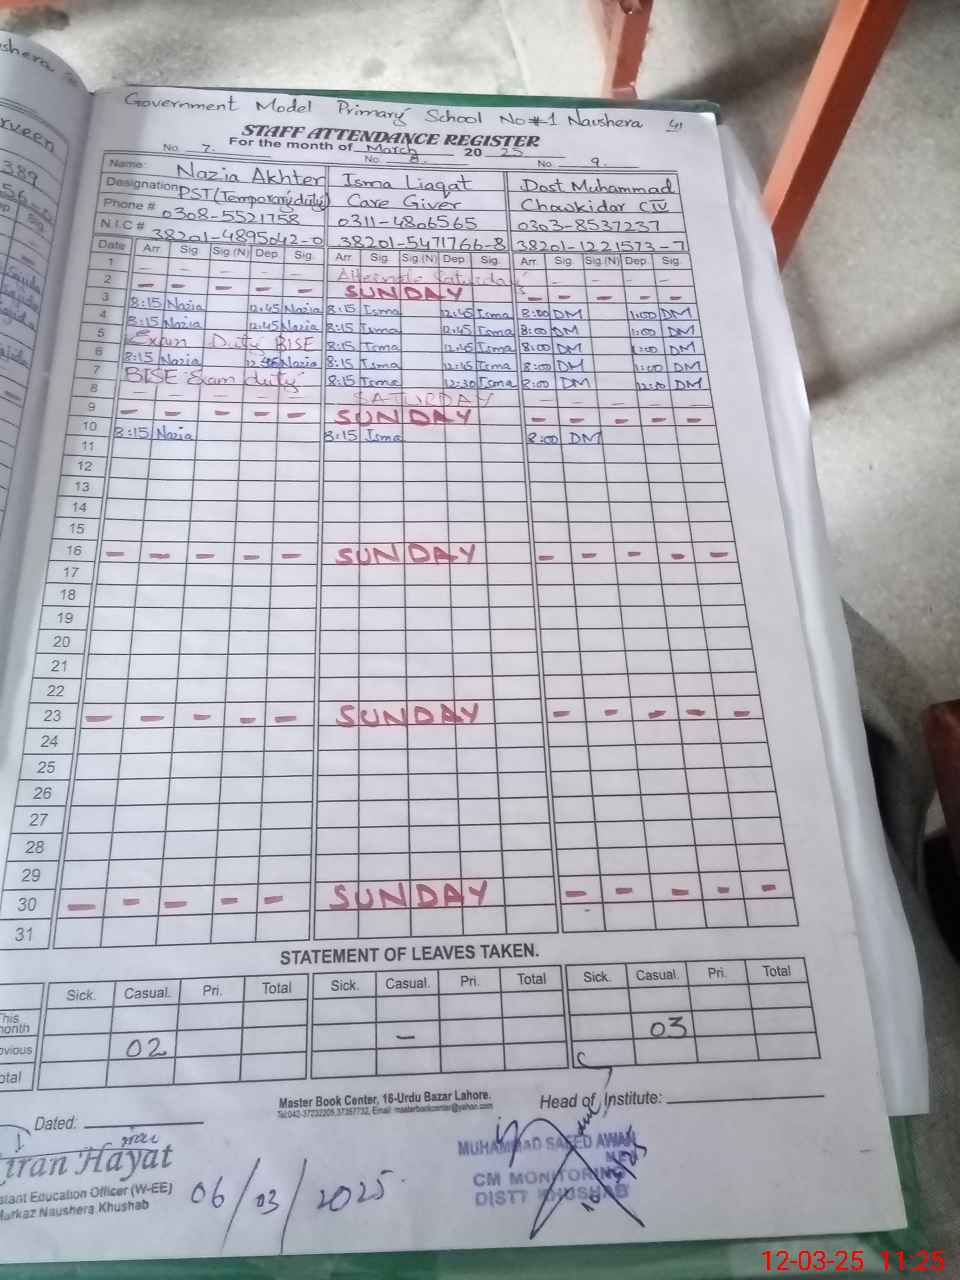 Government Model Primary School No #1 Naushera 41
STAFF ATTENDANCE REGISTER
For the month of March 2025
No. 7. No. 8. No. 9.
Name: Nazia Akhter Isma Liaqat Dost Muhammad
Designation PST (Temporary duty) Care Giver Chowkidar CIV
Phone # 0308-5521758 0311-4806565 0303-8537237
N.I.C # 38201-4895042-0 38201-5471766-8 38201-1221573-7
Date Arr. Sig. Sig.(N) Dep. Sig. Arr. Sig. Sig.(N) Dep. Sig. Arr. Sig. Sig.(N) Dep. Sig.
1 - - Alternate Saturday - -
2 - - - - - SUNDAY - - - - -
3 8:15 Nazia 12:45 Nazia 8:15 Isma 12:45 Isma 8:00 DM 1:00 DM
4 8:15 Nazia 12:45 Nazia 8:15 Isma 12:45 Isma 8:00 DM 1:00 DM
5 Exam Duty BISE 8:15 Isma 12:45 Isma 8:00 DM 1:00 DM
6 8:15 Nazia 12:45 Nazia 8:15 Isma 12:45 Isma 8:00 DM 1:00 DM
7 BISE Exam duty 8:15 Isma 12:30 Isma 8:00 DM 12:30 DM
8 - - - - - SATURDAY - - - - -
9 - - - - - SUNDAY - - - - -
10 8:15 Nazia 8:15 Isma 8:00 DM
11
12
13
14
15
16 - - - - - SUNDAY - - - - -
17
18
19
20
21
22
23 - - - - - SUNDAY - - - - -
24
25
26
27
28
29
30 - - - - - SUNDAY - - - - -
31
STATEMENT OF LEAVES TAKEN.
Sick. Casual. Pri. Total Sick. Casual. Pri. Total Sick. Casual. Pri. Total
This month
02 - 03
Master Book Center, 16-Urdu Bazar Lahore.
Head of Institute:
Dated:
Hayat
Education Officer (W-EE)
Markaz Naushera Khushab
06/03/2025
MUHAMMAD SAEED AWAN
CM MONITORING
DISTT KHUSHAB
12-03-25 11:25